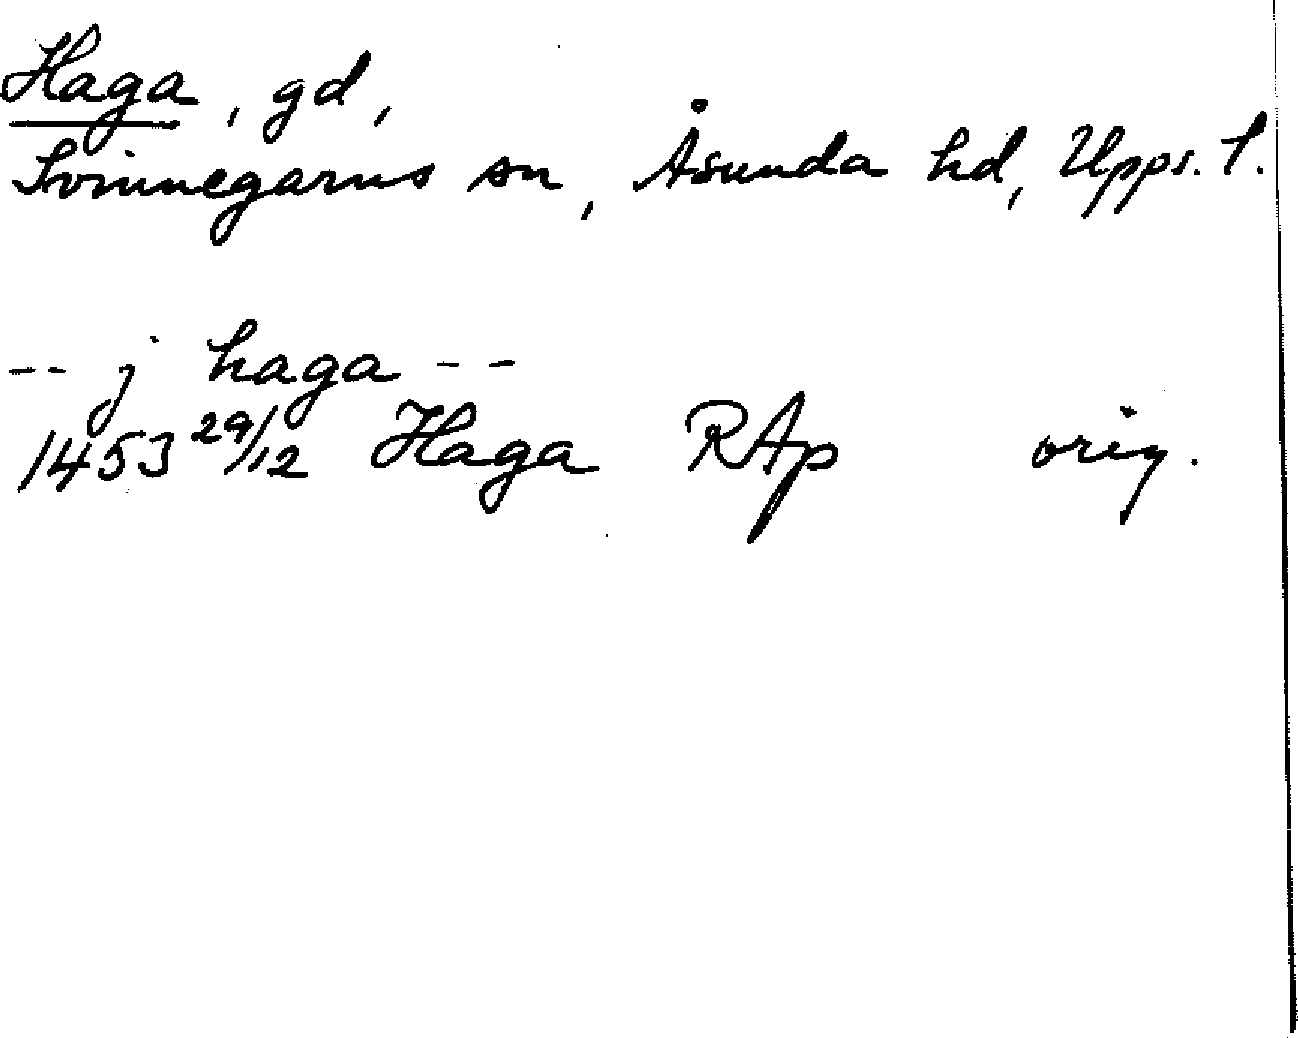 Haga, gd,
Svinnegarns sn, Åsunda hd, Upps. l.
-- j haga --
1453 29/12 Haga RAp orig.